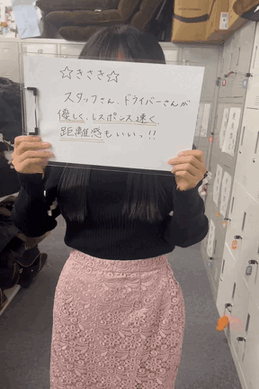 ☆きさき☆
スタッフさん、ドライバーさんが
優しく、レスポンス速く
距離感もいいっ!!